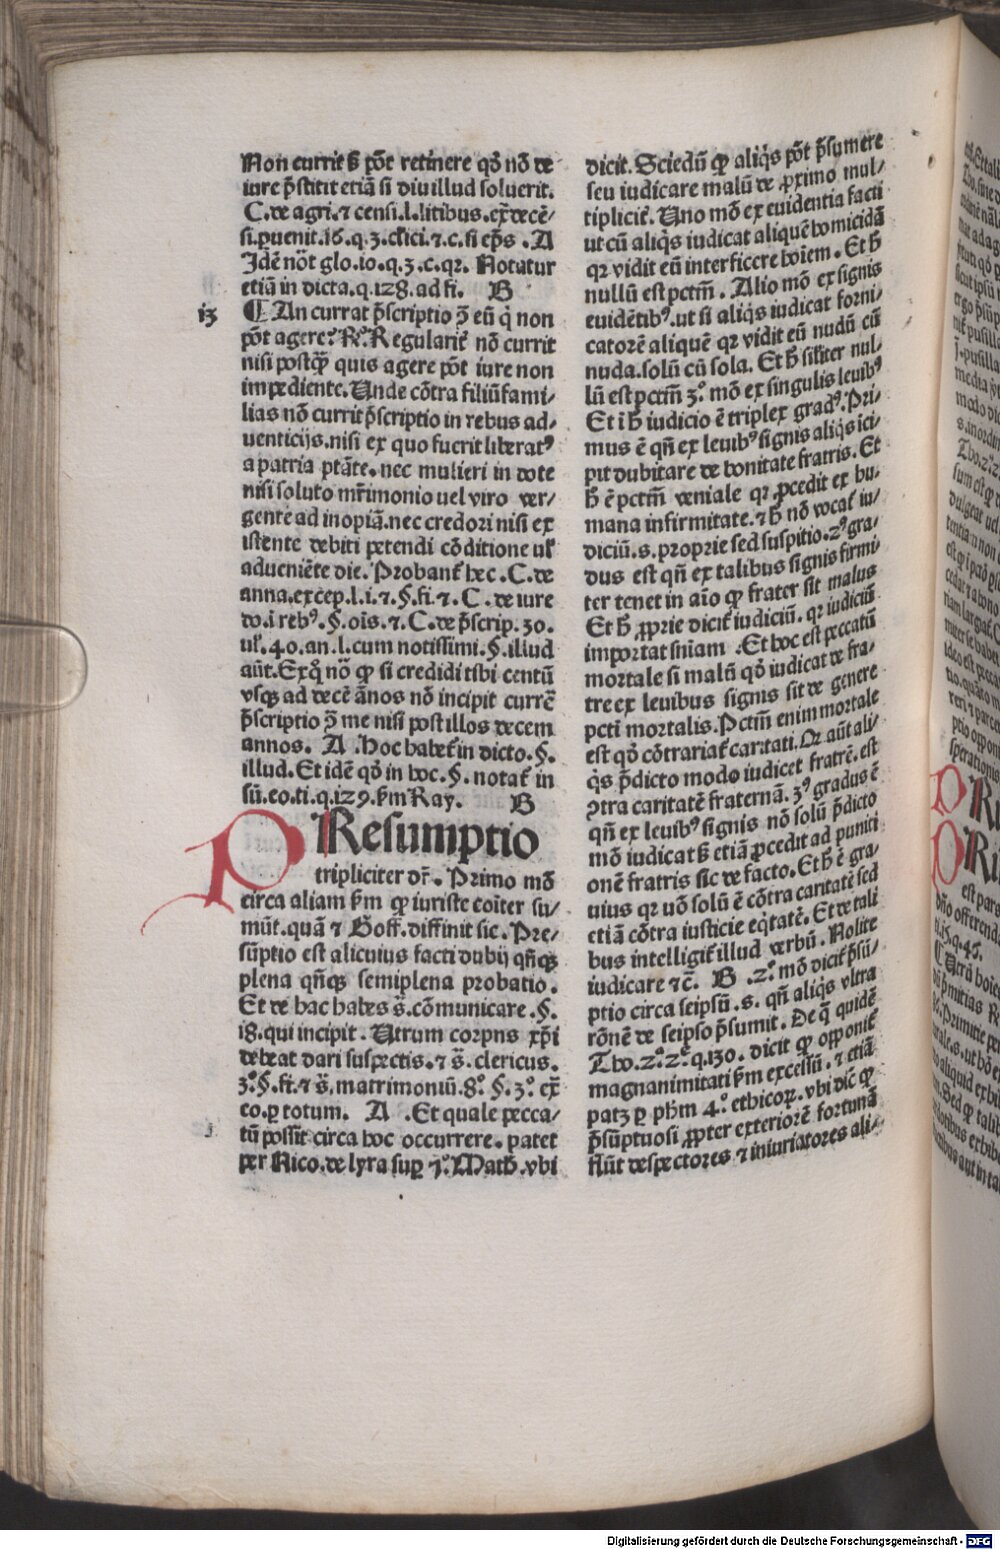 Non currit ꝫ põt retinere qď nõ de
iure p̃stitit etiã si diu illud soluerit.
C. de agri. ⁊ censi. l. litibus. ex̃ decē⸗
si. ꝑuenit. 16. q. 3. cĺici. ⁊. c. si ep̃s . A
Idē nõt glo. 10. q. 3. c. qꝛ. Notatur
etiã in dicta. q. 128. ad fi. B
13 ¶ An currat p̃scriptio ↄ̃ eũ q̇ non
põt agere? Rͦ. Regulariť nõ currit
nisi postq̃ȝ quis agere põt iure non
impediente. Unde cõtra filiũ fami⸗
lias nõ currit p̃scriptio in rebus ad⸗
uenticijs. nisi ex quo fuerit liberatꝰ
a patria ptãte. nec mulieri in dote
nisi soluto mr̃imonio uel viro ver⸗
gente ad inopiã. nec credori nisi ex
istente debiti petendi cõditione uľ
adueniēte die. Probanť hec. C. de
anna. excep. l. i. ⁊. §. fi. ⁊. C. de iure
do. ĩ rebꝰ. §. oĩs. ⁊. C. de p̃scrip. 30.
uľ. 40. an. l. cum notissimi. §. illud
aũt. Ex q̊ nõ ꝙ si credidi tibi centũ
vsqȝ ad decē ãnos nõ incipit currē
p̃scriptio ↄ̃ me nisi post illos decem
annos. A . hoc habeť in dicto. §.
illud. Et idē qď in hoc. §. notať in
sũ. eo. ti. q. 129. ẜm Ray. B
P PResumptio
tripliciter dr̃. Primo mõ
circa aliam ẜm ꝙ iuriste coiter su⸗
mũt. quã ⁊ Goff. diffinit sic. Pre⸗
sũptio est alicuius facti dubij qñqȝ
plena qñqȝ semiplena probatio.
Et de hac habes s̃. cõmunicare. §.
18. qui incipit. Utrum corpns xp̃i
debeat dari suspectis. ⁊ s̃. clericus.
3ͦ. §. fi. ⁊ s̃. matrimoniũ. 8ͦ. §. 3ͦ. ex̃
eo. ꝑ totum. A . Et quale pecca⸗
tũ possit circa hoc occurrere. patet
per Nico. de lyra suꝑ 7ͦ. Math. vbi
dicit. Sciedũ ꝙ aliq̇s põt p̃sumere
seu iudicare malũ de ꝓximo mul⸗
tipliciť. Uno mõ ex euidentia facti
ut cũ aliq̇s iudicat aliquē homicidã
qꝛ vidit eũ interficere hoiem. Et ħ
nullũ est pctm̃. Alio mõ ex signis
euidētibꝰ. ut si aliq̇s iudicat forni⸗
catorē aliquē qꝛ vidit eũ nudũ cũ
nuda. solũ cũ sola. Et ħ siľiter nul⸗
lũ est pctm̃ 3ͦ. mõ ex singulis leuibꝰ
Et ĩ ħ iudicio ē triplex gradꝰ. Pri⸗
mus ē qñ ex leuibꝰ signis aliq̇s ici⸗
pit dubitare de bonitate fratris. Et
ħ ē pctm̃ veniale qꝛ ꝓcedit ex hu⸗
mana infirmitate. ⁊ ħ nõ vocať iu⸗
diciũ. s. proprie sed suspitio. 2ꝰ gra⸗
dus est qñ ex talibus signis firmi⸗
ter tenet in aĩo ꝙ frater sit malus
Et ħ ꝓprie diciť iudiciũ. qꝛ iudiciũ
importat sniam . Et hoc est peccatũ
mortale si malũ qď iudicat de fra⸗
tre ex leuibus signis sit de genere
pcti mortalis. Pctm̃ enim mortale
est qď cõtrariať caritati. Qꝛ aũt ali⸗
q̇s p̃dicto modo iudicet fratrē. est
ↄtra caritatē fraternã. 3ꝰ gradus ē
qñ ex leuibꝰ signis nõ solũ p̃dicto
mõ iudicat ꝫ etiã ꝓcedit ad puniti
onē fratris sic de facto. Et ħ ē gra⸗
uius qꝛ nõ solũ ē cõtra caritatē sed
etiã cõtra iusticie eq̇tatē. Et de tali
bus intelligiť illud verbũ. Nolite
iudicare ⁊c̃. B . 2ͦ. mõ diciť p̃sũ⸗
ptio circa seipsũ. s. qñ aliq̇s vltra
rõnē de seipso p̃sumit. De q̃ quidē
Tho. 2ͣ. 2ͤ. q. 130. dicit ꝙ opponiť
magnanimitati ẜm excessũ. ⁊ etiã
patȝ ꝑ ph̃m 4ͦ. ethicoꝝ. vbi dic̃ ꝙ
p̃sũptuosi ꝓpter exteriorē fortunã
fiũt despectores ⁊ iniuriatores ali⸗
Digitalisierung gefördert durch die Deutsche Forschungsgemeinschaft - DFG